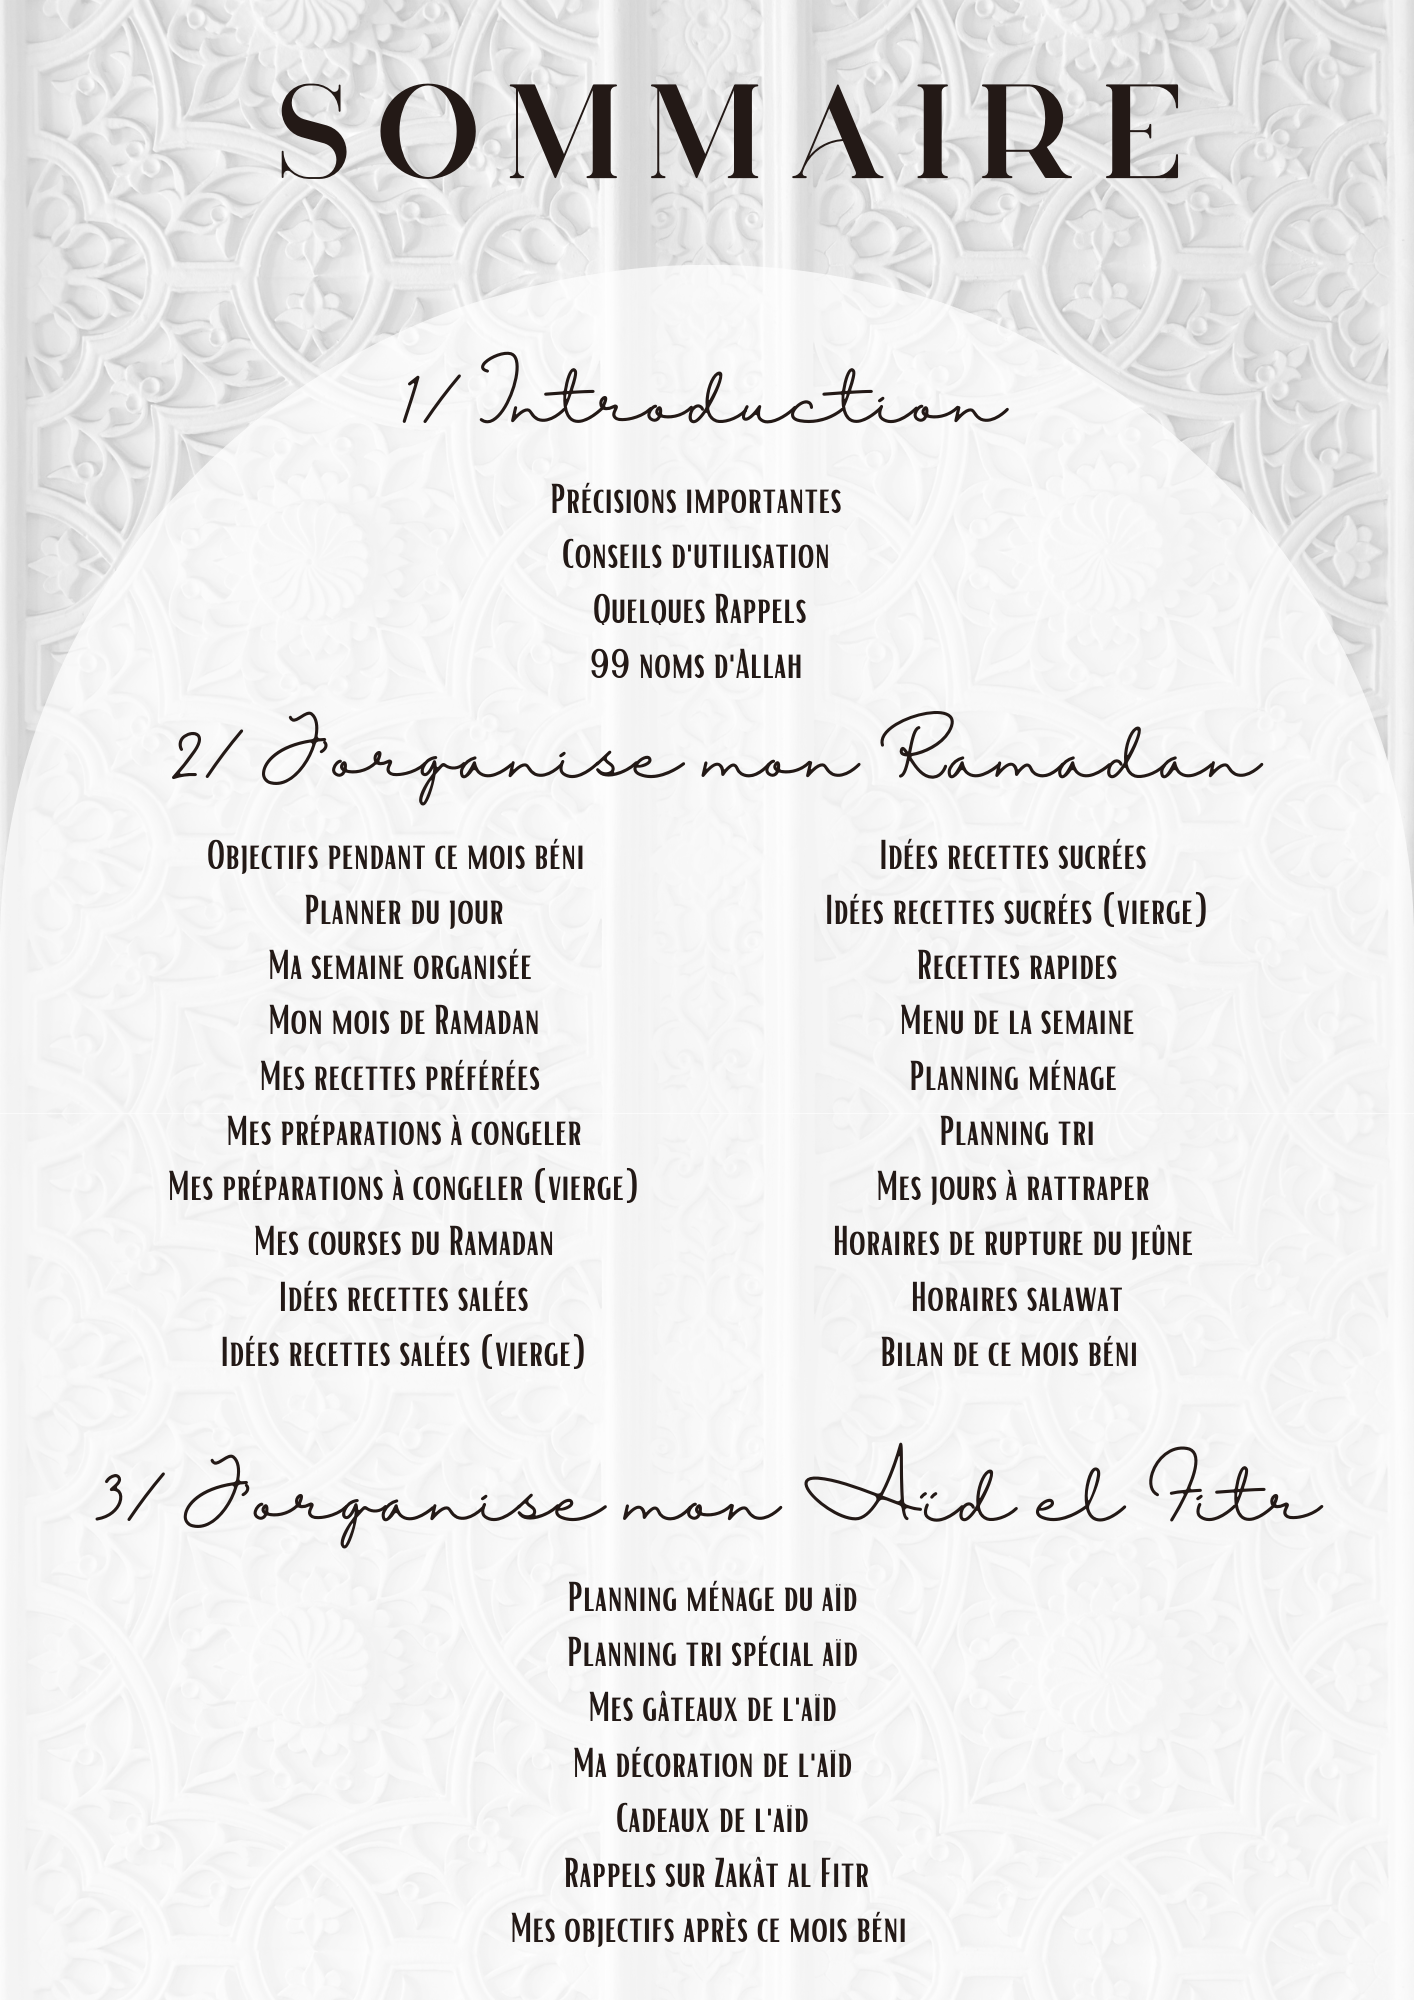 SOMMAIRE
1/ Introduction
Précisions importantes
Conseils d'utilisation
Quelques Rappels
99 noms d'Allah
2/ J'organise mon Ramadan
Objectifs pendant ce mois béni
Planner du jour
Ma semaine organisée
Mon mois de Ramadan
Mes recettes préférées
Mes préparations à congeler
Mes préparations à congeler (vierge)
Mes courses du Ramadan
Idées recettes salées
Idées recettes salées (vierge)
Idées recettes sucrées
Idées recettes sucrées (vierge)
Recettes rapides
Menu de la semaine
Planning ménage
Planning tri
Mes jours à rattraper
Horaires de rupture du jeûne
Horaires salawat
Bilan de ce mois béni
3/ J'organise mon Aïd el Fitr
Planning ménage du aïd
Planning tri spécial aïd
Mes gâteaux de l'aïd
Ma décoration de l'aïd
Cadeaux de l'aïd
Rappels sur Zakât al Fitr
Mes objectifs après ce mois béni